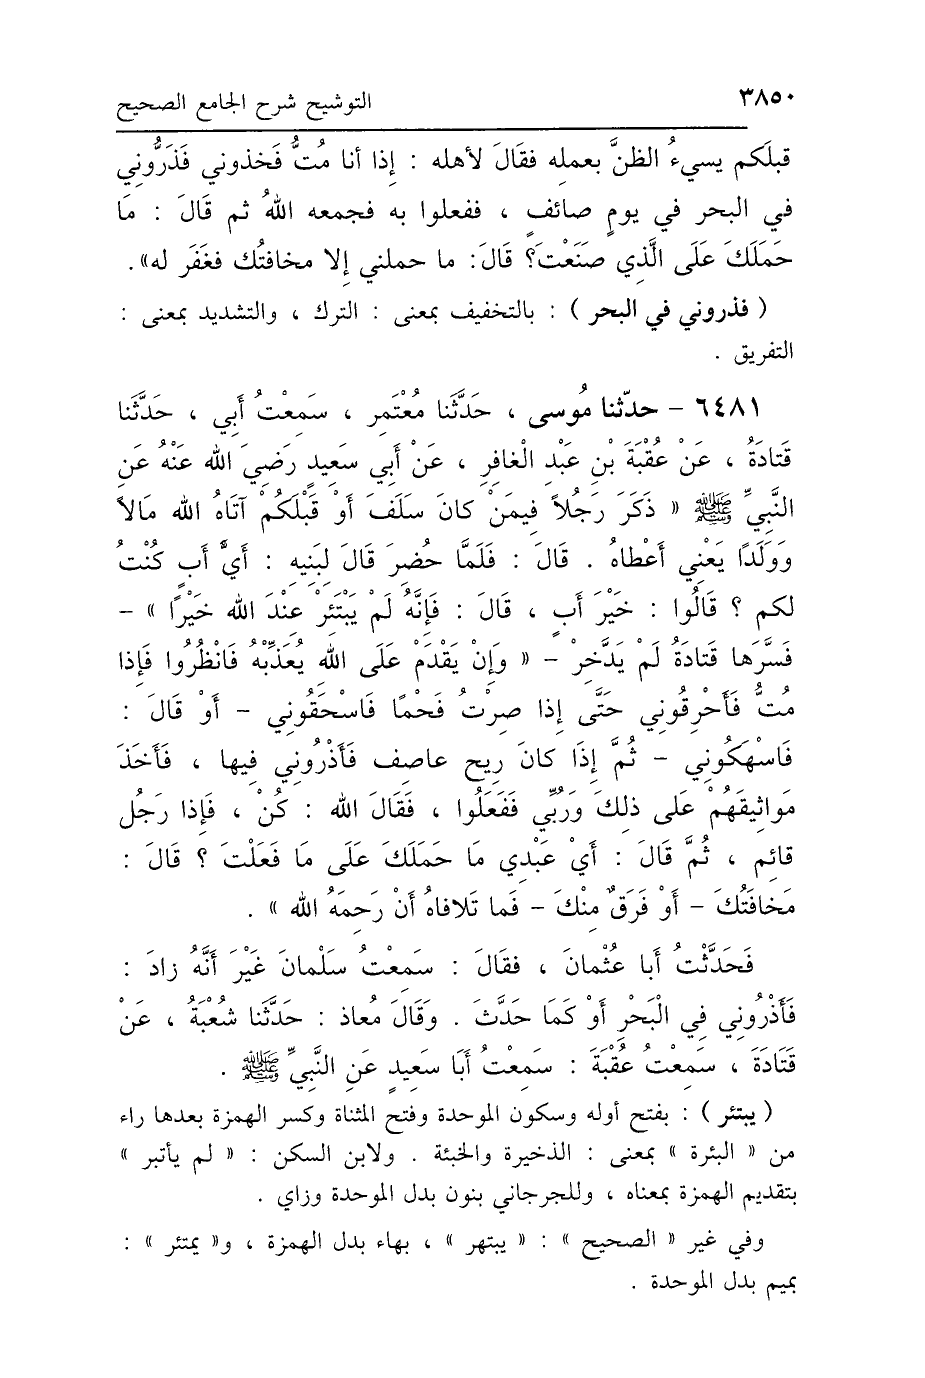 ٣٨٥٠ التوشيح شرح الجامع الصحيح
قبلَكم يسيءُ الظنَّ بعمله فقَالَ لأهله : إذا أنا مُتُّ فَخذوني فَذَرُّوني
في البحر في يومٍ صائفٍ ، ففعلوا به فجمعه اللهُ ثم قَالَ : مَا
حَمَلَكَ عَلَى الَّذِي صنَعْتَ؟ قَالَ: ما حملني إلا مخافتُك فغَفَر له».
( فذروني في البحر ) : بالتخفيف بمعنى : الترك ، والتشديد بمعنى :
التفريق .
٦٤٨١ – حدّثنا مُوسى ، حَدَّثَنا مُعْتَمر ، سَمِعْتُ أَبي ، حَدَّثَنا
قَتادَةُ ، عَنْ عُقْبَةَ بْنِ عَبْدِ الْغافِرِ ، عَنْ أَبي سَعِيدٍ رَضِيَ الله عَنْهُ عَنِ
النَّبِيِّ ﷺ « ذَكَرَ رَجُلاً فِيمَنْ كانَ سَلَفَ أَوْ قَبْلَكُمْ آتَاهُ الله مَالاً
وَوَلَدًا يَعْنِي أَعْطاهُ . قَالَ : فَلَمَّا حُضِرَ قَالَ لِبَنِيهِ : أَيَُّ أَبٍ كُنْتُ
لكم ؟ قَالُوا : خَيْرَ أَبٍ ، قَالَ : فَإِنَّهُ لَمْ يَبْتَئِرْ عِنْدَ الله خَيْرًا » –
فَسَّرَها قَتادَةُ لَمْ يَدَّخِرْ – « وَإِنْ يَقْدَمْ عَلَى اللهِ يُعَذِّبْهُ فَانْظُرُوا فَإِذا
مُتُّ فَأَحْرِقُونِي حَتَّى إذا صِرْتُ فَحْمًا فَاسْحَقُونِي – أَوْ قَالَ :
فَاسْهَكُونِي – ثُمَّ إِذَا كانَ رِيح عاصِف فَأَذْرُونِي فِيها ، فَأَخَذَ
مَواثِيقَهُمْ عَلى ذلِكَ وَرَبِّي فَفَعَلُوا ، فَقَالَ الله : كُنْ ، فَإِذا رَجُل
قائِم ، ثُمَّ قَالَ : أَيْ عَبْدِي مَا حَمَلَكَ عَلَى مَا فَعَلْتَ ؟ قَالَ :
مَخافَتُكَ – أَوْ فَرَقٌ مِنْكَ – فَما تَلافاهُ أَنْ رَحِمَهُ الله » .
فَحَدَّثْتُ أَبا عُثْمانَ ، فقَالَ : سَمِعْتُ سَلْمانَ غَيْرَ أَنَّهُ زادَ :
فَأَذْرُونِي فِي الْبَحْرِ أَوْ كَمَا حَدَّثَ . وَقَالَ مُعاذ : حَدَّثَنا شُعْبَةُ ، عَنْ
قَتَادَةَ ، سَمِعْتُ عُقْبَةَ : سَمِعْتُ أَبَا سَعِيدٍ عَنِ النَّبِيِّ ﷺ .
( يبتئر ) : بفتح أوله وسكون الموحدة وفتح المثناة وكسر الهمزة بعدها راء
من « البئرة » بمعنى : الذخيرة والخبئة . ولابن السكن : « لم يأتبر »
بتقديم الهمزة بمعناه ، وللجرجاني بنون بدل الموحدة وزاي .
وفي غير « الصحيح » : « يبتهر » ، بهاء بدل الهمزة ، و« يمتئر » :
بميم بدل الموحدة .